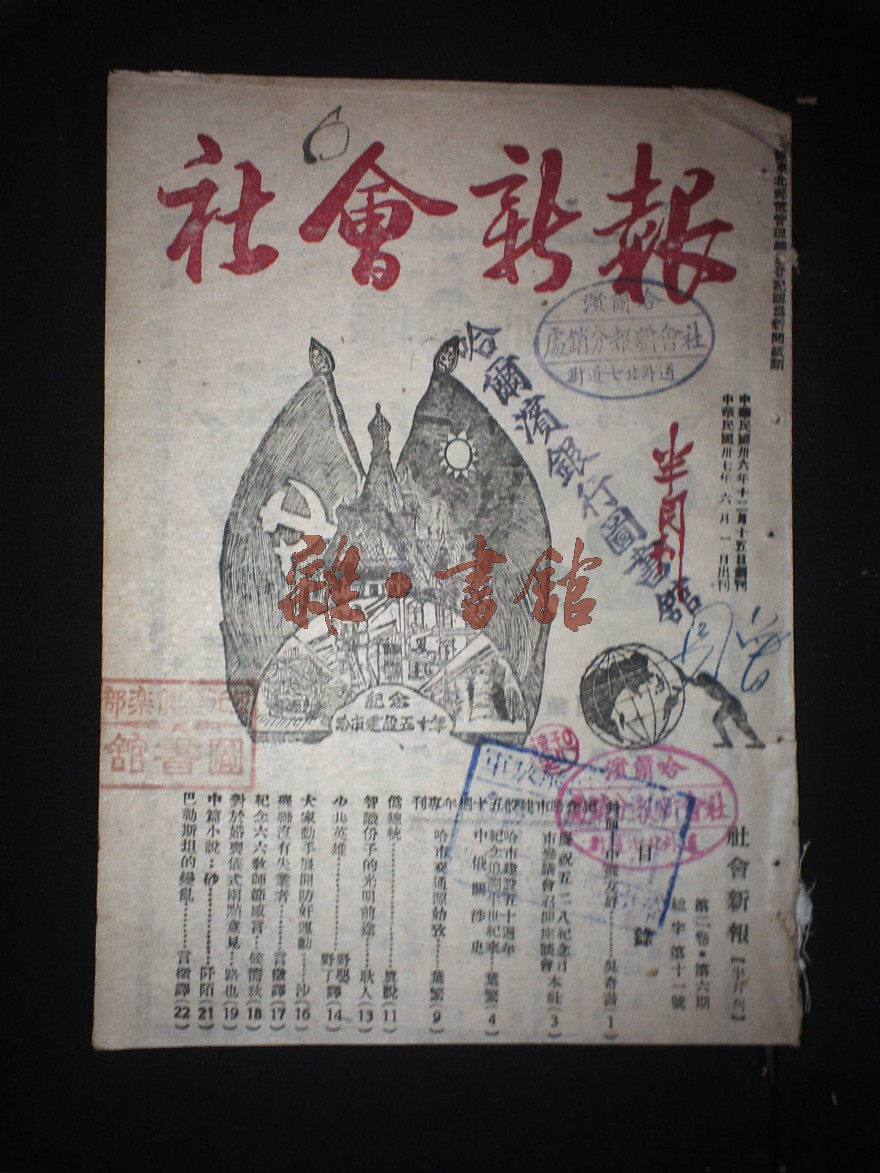 社會新報
6
半月刊
中華民國卅六年十二月十五日創刊
中華民國卅七年六月一日出刊
哈爾濱
社會新報分銷處
道外北七道街
哈爾濱銀行圖書館
雜·書館
紀念
哈市建設五十年
圖書館
哈爾濱
社會新報分銷處
道外北七道街
社會新報【半月刊】
第二卷·第六期
總字第十一號
目錄
封面 中蘇友好 吳奇書(1)
紀念哈市建設五十週年專刊
慶祝五二八紀念日
市參議會召開座談會 本社(3)
哈市建設五十週年
紀念追溯半世紀來
中俄關涉史 葉繁(4)
哈市交通源始攷 葉繁(9)
僞總統 眞說(11)
智識份子的光明前途 耿人(13)
少共英雄 野嬰 野丁譯(14)
大家動手展開防奸運動 沙(16)
蘇聯沒有失業者 言徵譯(17)
紀念六六教師節感言 侯簡秋(18)
對於婚喪儀式兩點意見 路也(19)
中篇小說：砂 阡陌(21)
巴勒斯坦的變亂 言徵譯(22)